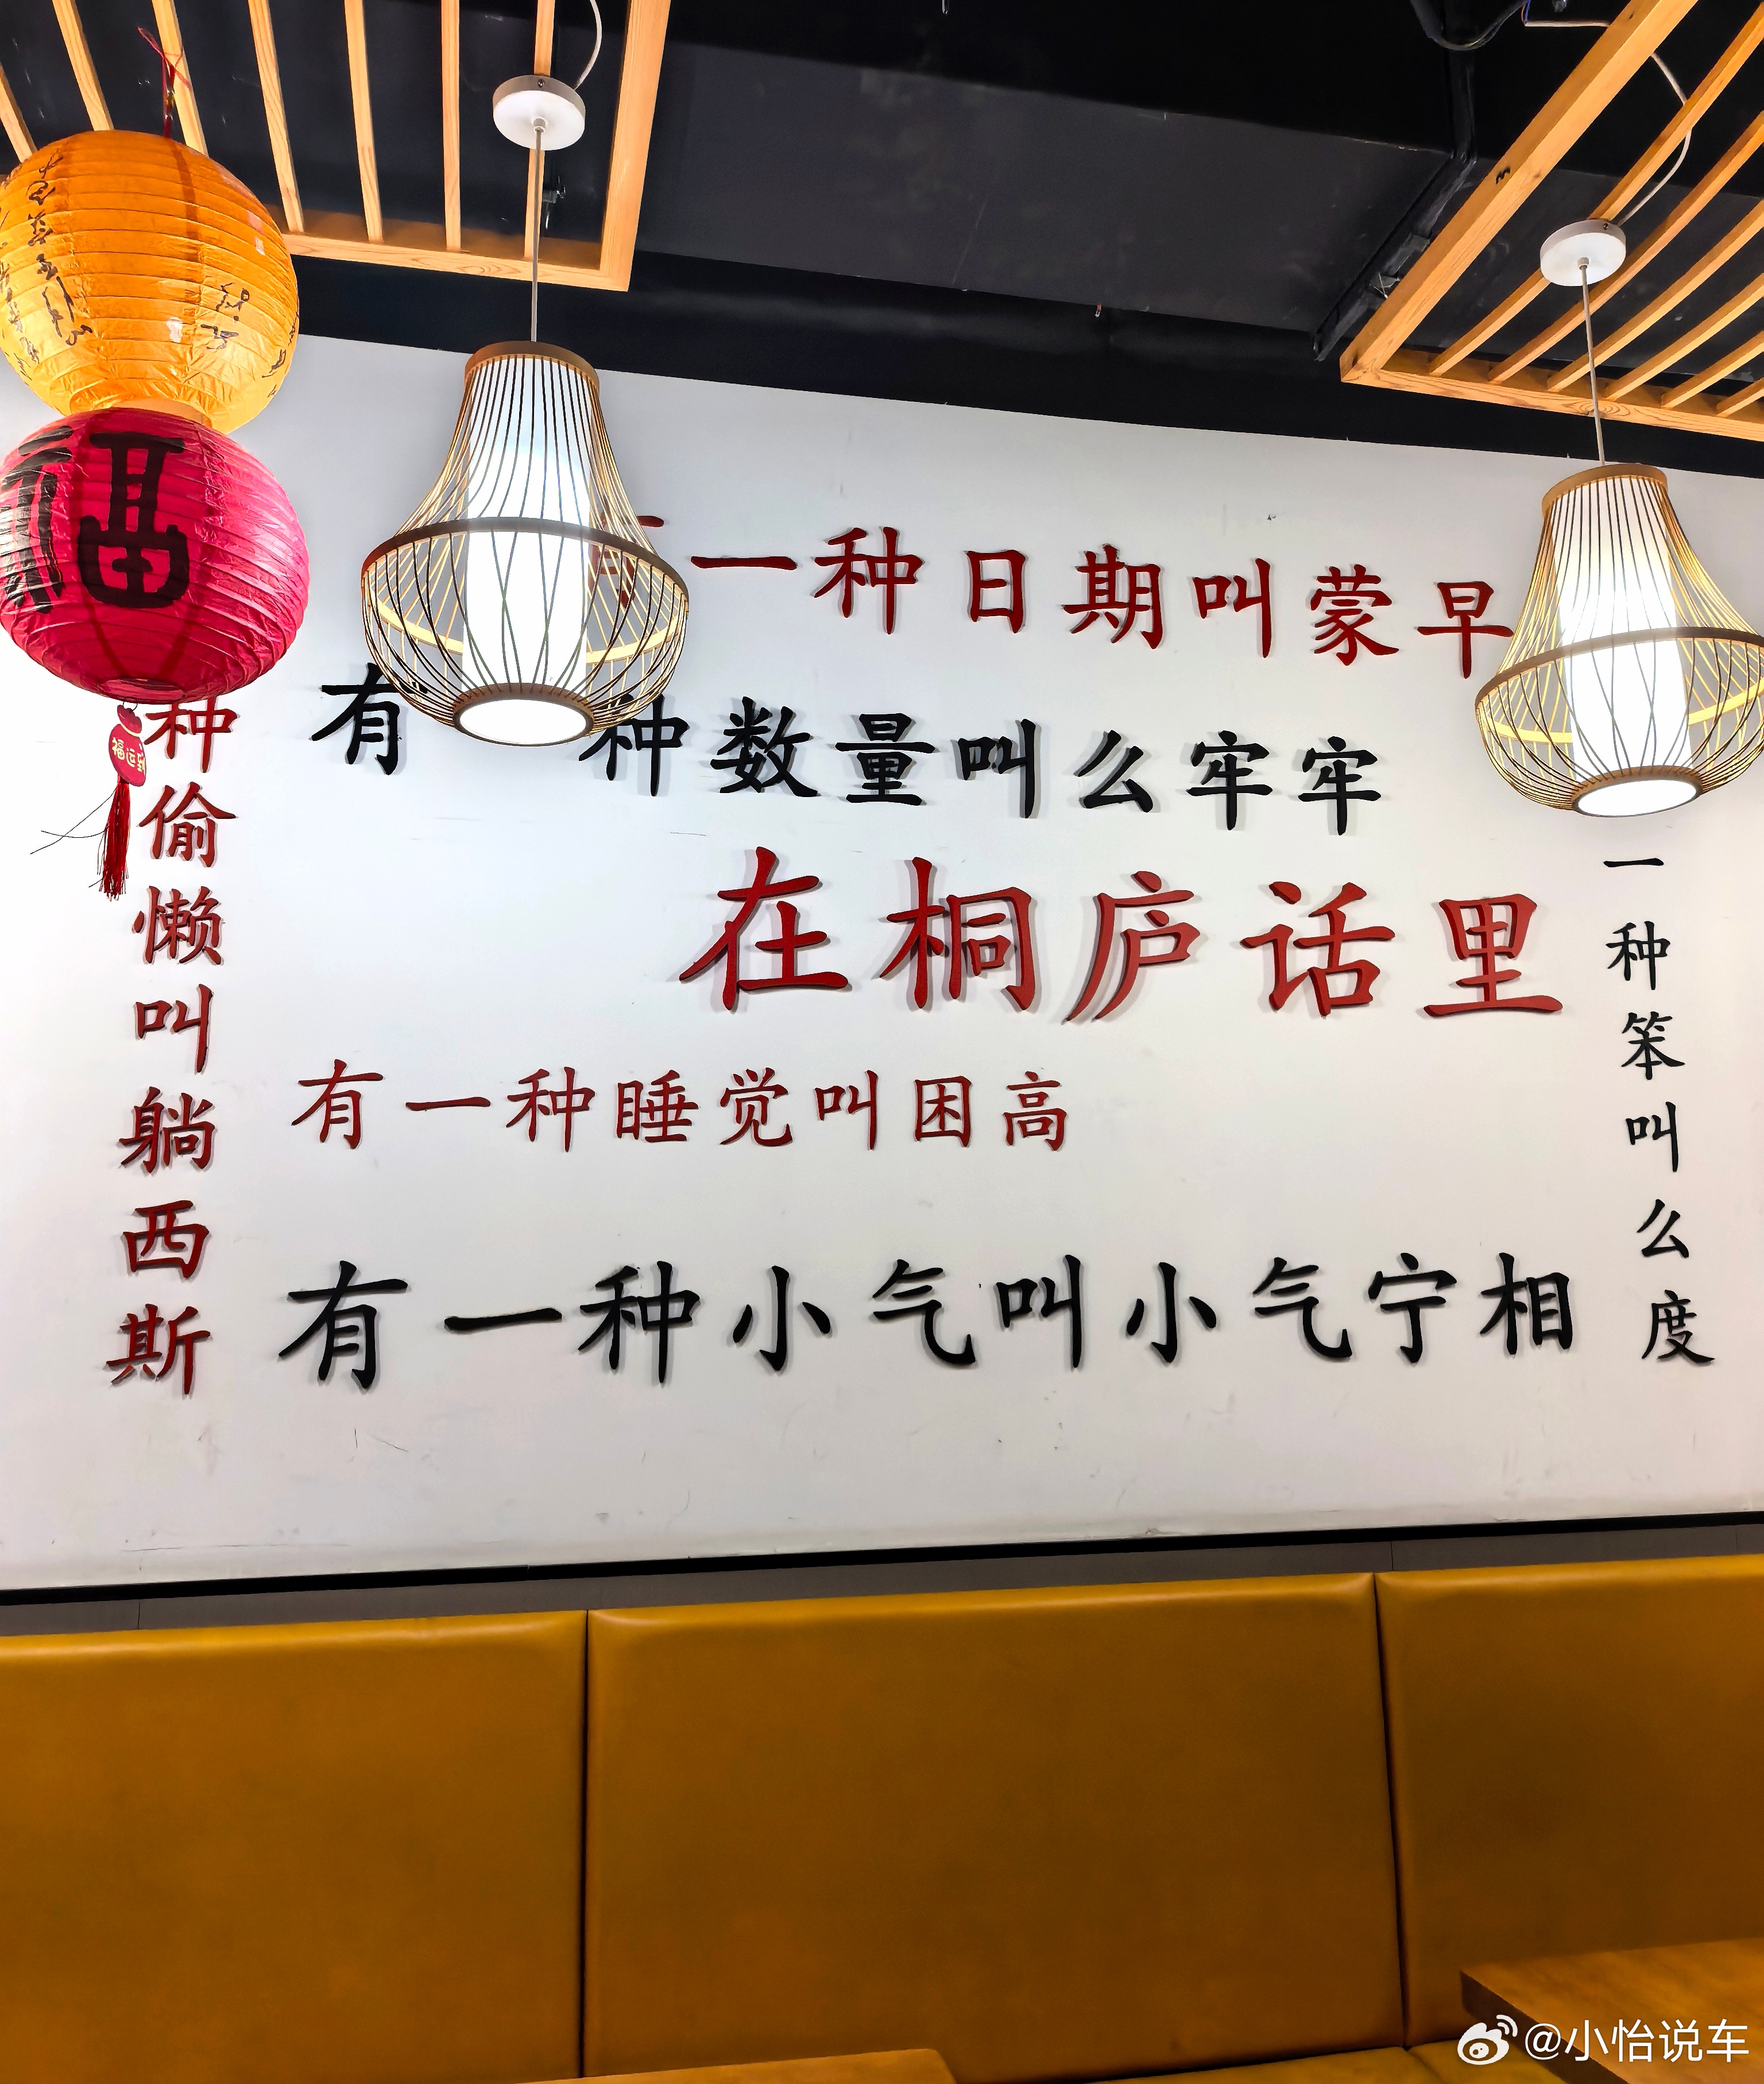 一种日期叫蒙早
有 种数量叫么牢牢
在桐庐话里
有一种睡觉叫困高
有一种小气叫小气宁相
种偷懒叫躺西斯
一种笨叫么度
福
福运到
@小怡说车